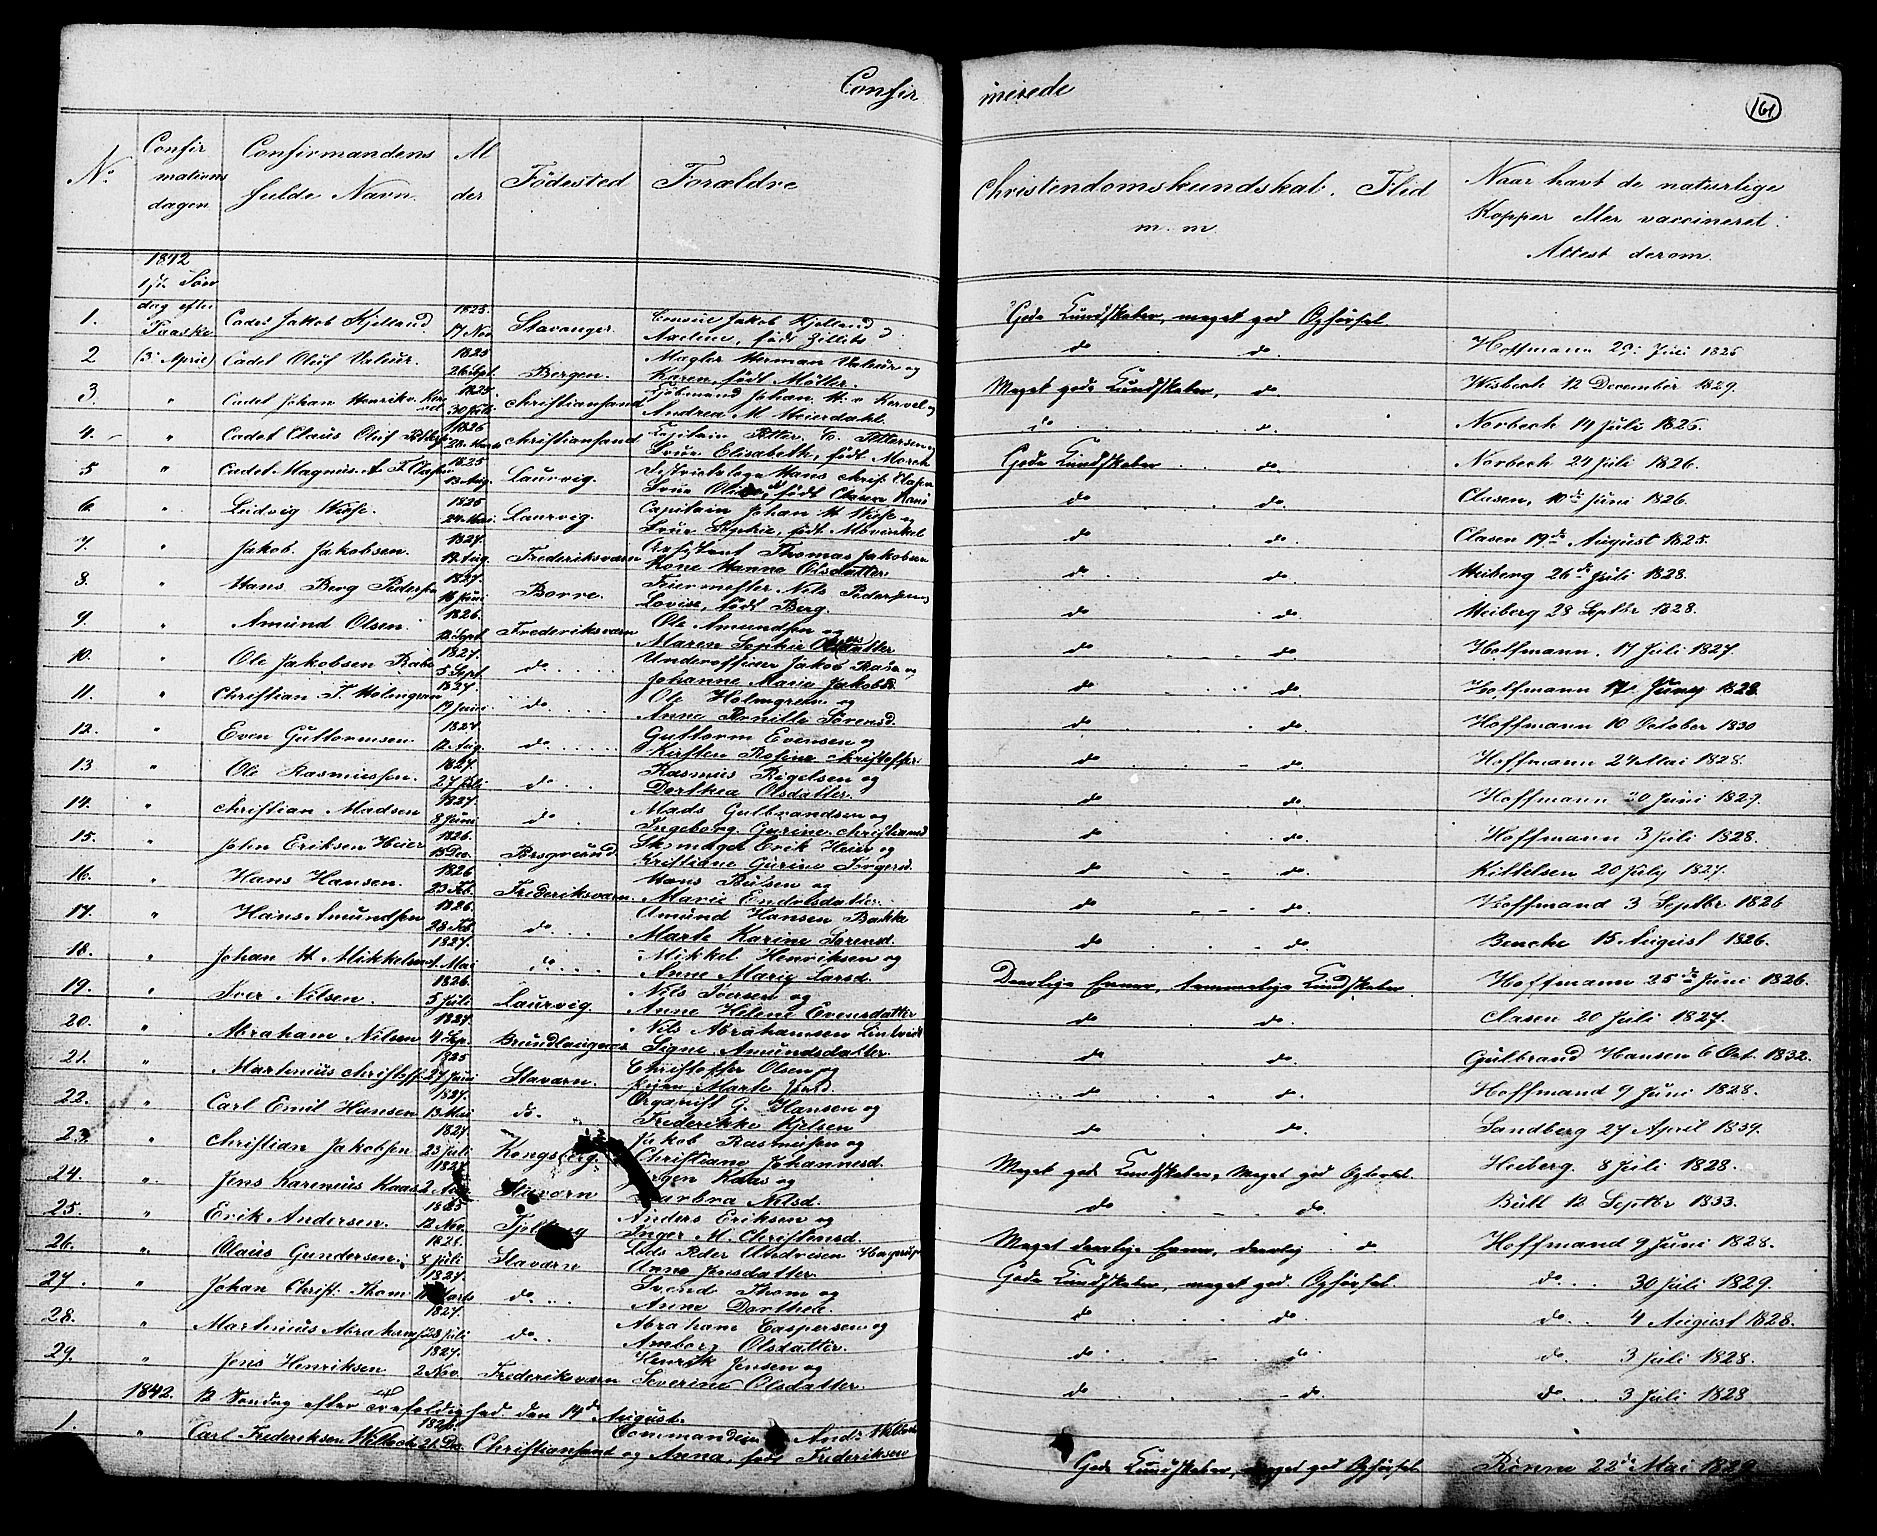 Confir merede
161
No
Confir mations dagen
Confirmandens fulde Navn.
Al der
Födested
Forældre
Christendomskundskab. Flid m. m.
Naar havt de naturlige Kopper eller vaccineret. Attest derom.
1842 1ste Søn dag efter Paaske (3 April)
1. Cadet Jakob Kjelland 1825. 17 Nov Stavanger. Jakob Kjelland Axeline, født Zilletz Gode Kundskaber, meget god Opførsel.
2 Cadet Oluf Valeur. 1825 26 Sept. Bergen. Mægler Herman Valeur og Karen, født Møller. do do. Hoffmann 29 Juli 1826
3. " Cadet Johan Henrik v. Kervel 1825. 30 Juli Christiansand Kjøbmand Johan H. v Kervel og Andrea M. Heierdahl Meget gode Kundskaber, do. Wisbech 12 December 1829.
4. " Cadet Claus Oluf Petters 1826 Christiansand Capitain Petter C. Pettersen og Frue Elisabeth, født Morch do do. Norbech 14 Juli 1826.
5 " Cadet Magnus A. F. Clasen 1825 13 Aug. Laurvig. Hans Christ. Clasen Frue født Claura Gode Kundskaber do. Norbech 24 Juli 1826.
6. " Ludvig Wisse. 1825 Laurvig. Capitain Johan H Wisse og Frue Sophie, født do do. Clasen, 10de Juni 1826.
7. " Jakob Jakobsen. 1827. 17 Aug. Frederiksværn Thomas Jakobsen Kone Hanne Olsdatter do do. Clasen 19de August 1825.
8. " Hans Berg Pedersen 1827. 16 Juni Borre. Feiermester Nils Pedersen og Lovise, født Berg. do do. Heiberg 26de Juli 1828.
9. " Amund Olsen. 1826. 12 Sept. Frederiksværn Ole Amundsen og Maren Sophie Olsdatter do do. Heiberg 28 Septbr 1828.
10. " Ole Jakobsen Rabe 1827. 5 Sept. do. Underofficier Jakob Rabe og Johanne Marie Jakobsd. do do. Hoffmann. 17 Juli 1827.
11. " Christian T. Holmgren 1827. 19 Juni do Ole Holmgren og Anne Pernille Sørensd. do do Hoffmann 17 Juny 1828
12. " Even Guttormsen 1827 12 Aug. do Guttorm Evensen og Kirsten Rosine Christoffer. do do. Hoffmann 10 October 1830
13 " Ole Rasmussen. 1827. 27 Juli do Rasmus Rigelsen og Dorthea Olsdatter. do do. Hoffmann 24 Mai 1828.
14. " Christian Madsen 1827. 8 Juni do Mads Gulbrandsen og Ingeborg Gurine Christiansd do do. Hoffmann 30 Juni 1829.
15. " John Eriksen Heier 1826. 15 Dec. Porsgrund Skomager Erik Heier og Kristiane Gurine Torgersd. do do. Hoffmann 3 Juli 1828.
16. " Hans Hansen. 1826 23 Feb. Frederiksværn Hans Pulsen og Marie Endolsdatter. do do. Kittelsen 20 July 1827.
17. " Hans Amundsen 1826. 28 Feb do Amund Hansen Bakke Marte Karine Sørensd. do do. Hoffmand 3 Septbr 1826
18. " Johan H Mikkelsen 1827. 1 Mai do Mikkel Henriksen og Anne Marie Larsd. do do. Benche 15 August 1826.
19. " Iver Nilsen. 1826. 5 Juli Laurvig. Nils Iversen og Anne Helene Evensdatter Daarlige Evner, temmelige Kundskaber. Hoffmann 25de Juni 1826.
20. " Abraham Nilsen 1827. 4 Sep. Brundlaugnæs Nils Abrahamsen Lintvedt Signe Amundsdatter. do do. Clasen 20 Juli 1827.
21. " Martinius Christoff. 1825 27 Juni Staværn. Christoffer Olsen og Marte do do. Gulbrand Hansen 6 Oct. 1832.
22. " Carl Emil Hansen 1827. 13 Mai do. Organist G. Hansen og Frederikke Kielsen do do. Hoffmand 9 Juni 1828.
23. " Christian Jakobsen 1827 23 Juli Kongsberg Jakob Rasmussen og Christiane Johannesd. do do. Sandberg 27 April 1839.
24. " Jens Karenius Kaas 1827 2 Stavern Jørgen Kaas og Barbra Nilsd. Meget gode Kundskaber, meget god Opførsel. Heiberg. 8 Juli 1828.
25. " Erik Andersen. 1825 12 Nov. Tjølling Anders Eriksen og Inger M. Christensd. do do. Bull 12 Septbr 1833.
26. " Olaus Gundersen. 1826. 8 Juli Stavern Anne Jensdatter Meget daarlige Evner, daarlig do Hoffmand 9 Juni 1828.
27. " Johan Christ. Thom 1827. Marts do Svend Thom og Anne Dorthea. Gode Kundskaber, meget god Opførsel. do 30 Juli 1829.
28. " Martinius Abrahams 1827. 28 Juli do. Abraham Caspersen og Amborg Olsdatter. do do. do. 4 August 1828.
29. " Jens Henriksen 1827. 2 Nov. Frederiksværn Henrik Jensen og Severine Olsdatter. do do. do. 3 Juli 1828.
do do. do 3 Juli 1828
1842. 12 Søndag efter Trefoldighed den 14de August.
1. " Carl Frederiksen Willoch 21 Dec Christiansand Commandeur og Anna, født Frederiksen Gode Kundskaber, meget god Opførsel Rönne 22de Mai 1829